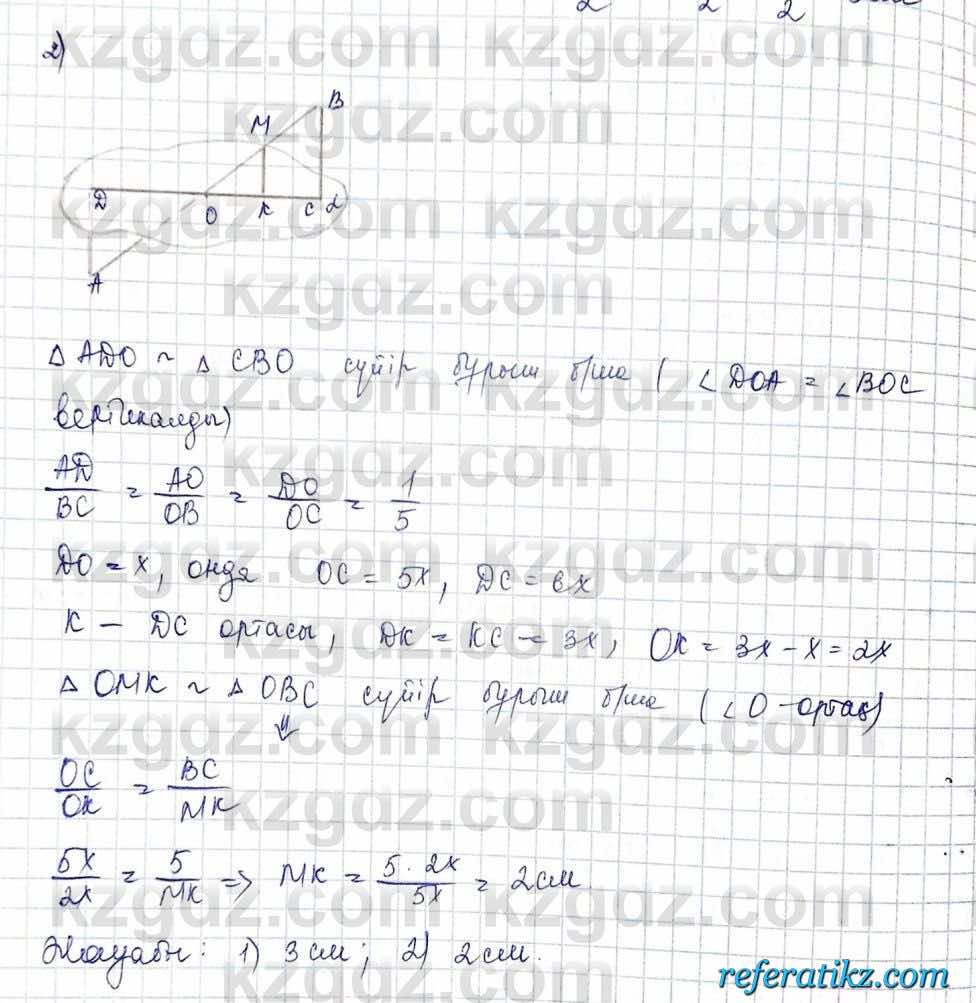 2)
B
M
D O K C α
A
Δ ADO ~ Δ CBO сүйір бұрыш б/ша ( ∠DOA = ∠BOC
вертикалды)
AD/BC = AO/OB = DO/OC = 1/5
DO = x, онда OC = 5x, DC = 6x
K — DC ортасы, DK = KC = 3x, OK = 3x - x = 2x
Δ OMK ~ Δ OBC сүйір бұрыш б/ша (∠O - ортақ)
⇓
OC/OK = BC/MK
5x/2x = 5/MK => MK = 5 · 2x/5x = 2 см
Жауабы: 1) 3 см; 2) 2 см.
kzgdz.com
referatikz.com